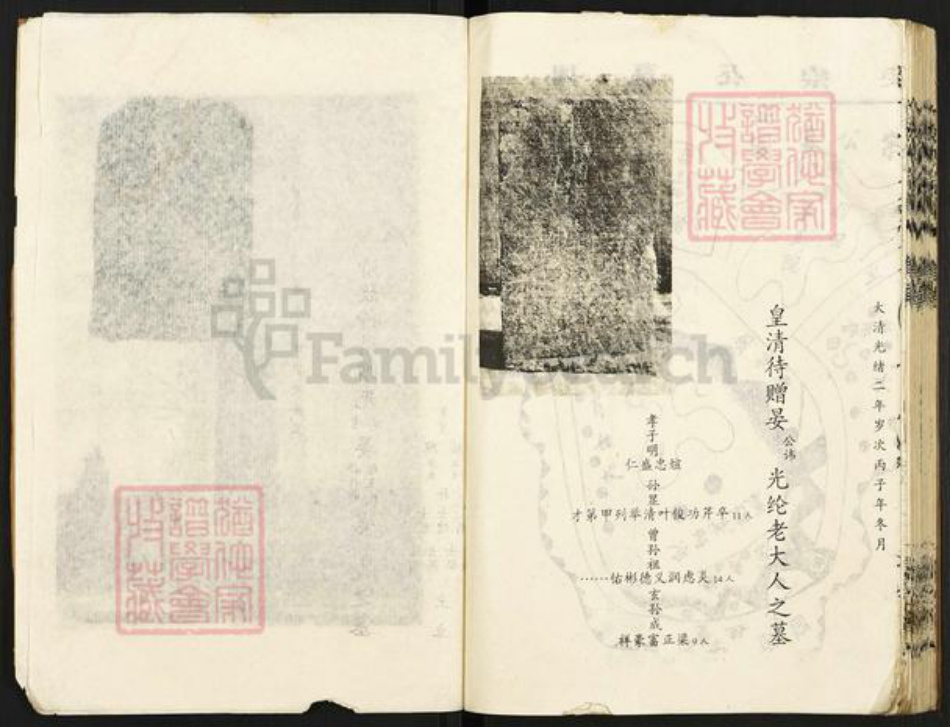 大清光绪二年岁次丙子年冬月
皇清待赠晏公讳光纶老大人之墓
孝子明
仁盛忠煊
孙星
才第甲列举清叶俊功芹卒11人
曾孙祖
……怙彬德义润虑炎14人
玄孙成
祥豪富正梁9人
FamilySearch
譜學會
收藏
譜學會
收藏